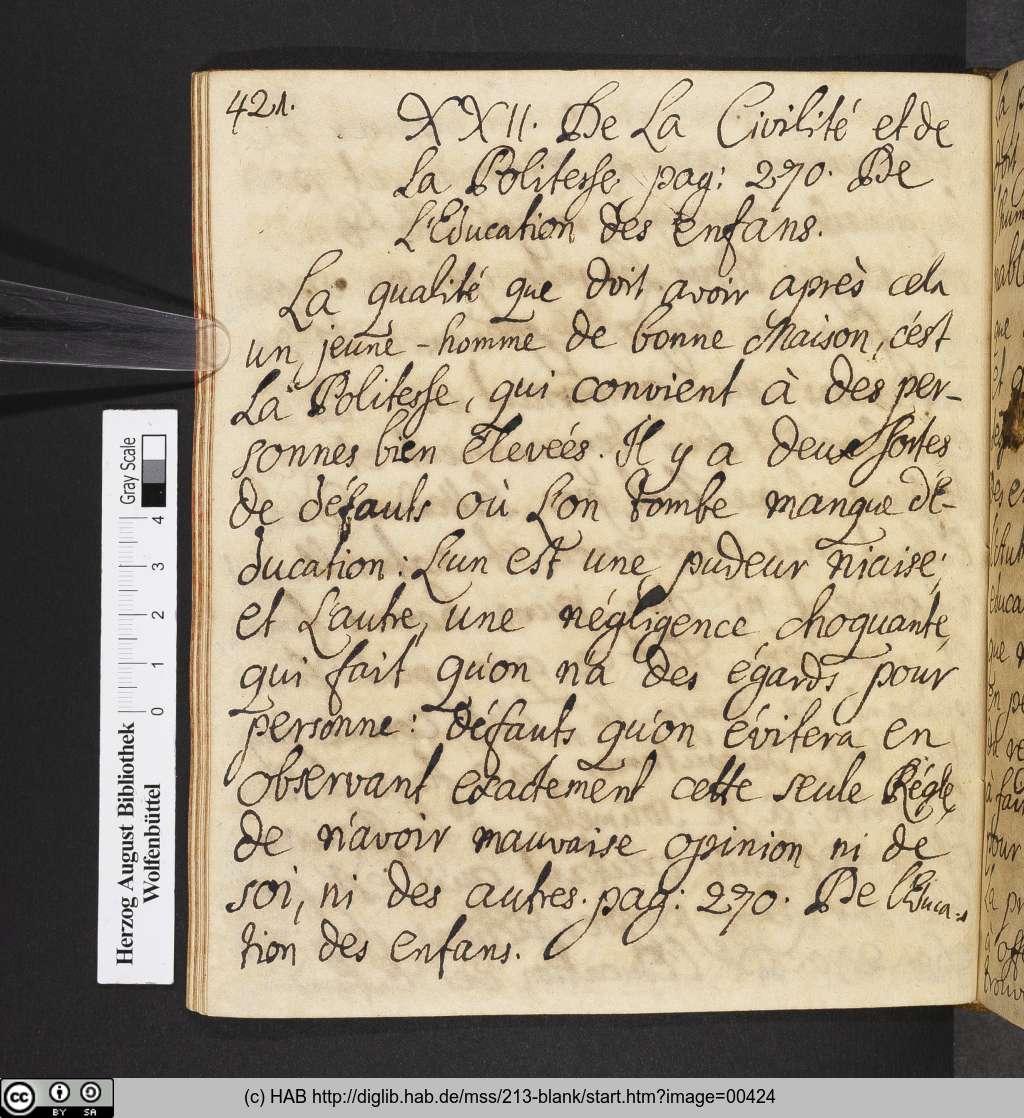 421.
XXII. De La Civilité et de
La Politesse pag: 270. De
L'Education des enfans.
La qualité que doit avoir après cela
un jeune-homme de bonne Maison, c'est
La Politesse, qui convient à des per-
sonnes bien Elevées. Il y a deux sortes
de défauts où L'on tombe manque d'é-
ducation: L'un est une pudeur niaise;
et L'autre, une négligence choquante,
qui fait qu'on n'a des égards pour
personne: défauts qu'on évitera en
observant exactement cette seule Régle,
de n'avoir mauvaise opinion ni de
soi, ni des autres. pag: 270. De l'Educa-
tion des enfans.
Gray Scale
4
3
2
1
0
Herzog August Bibliothek
Wolfenbüttel
cc BY SA
(c) HAB http://diglib.hab.de/mss/213-blank/start.htm?image=00424